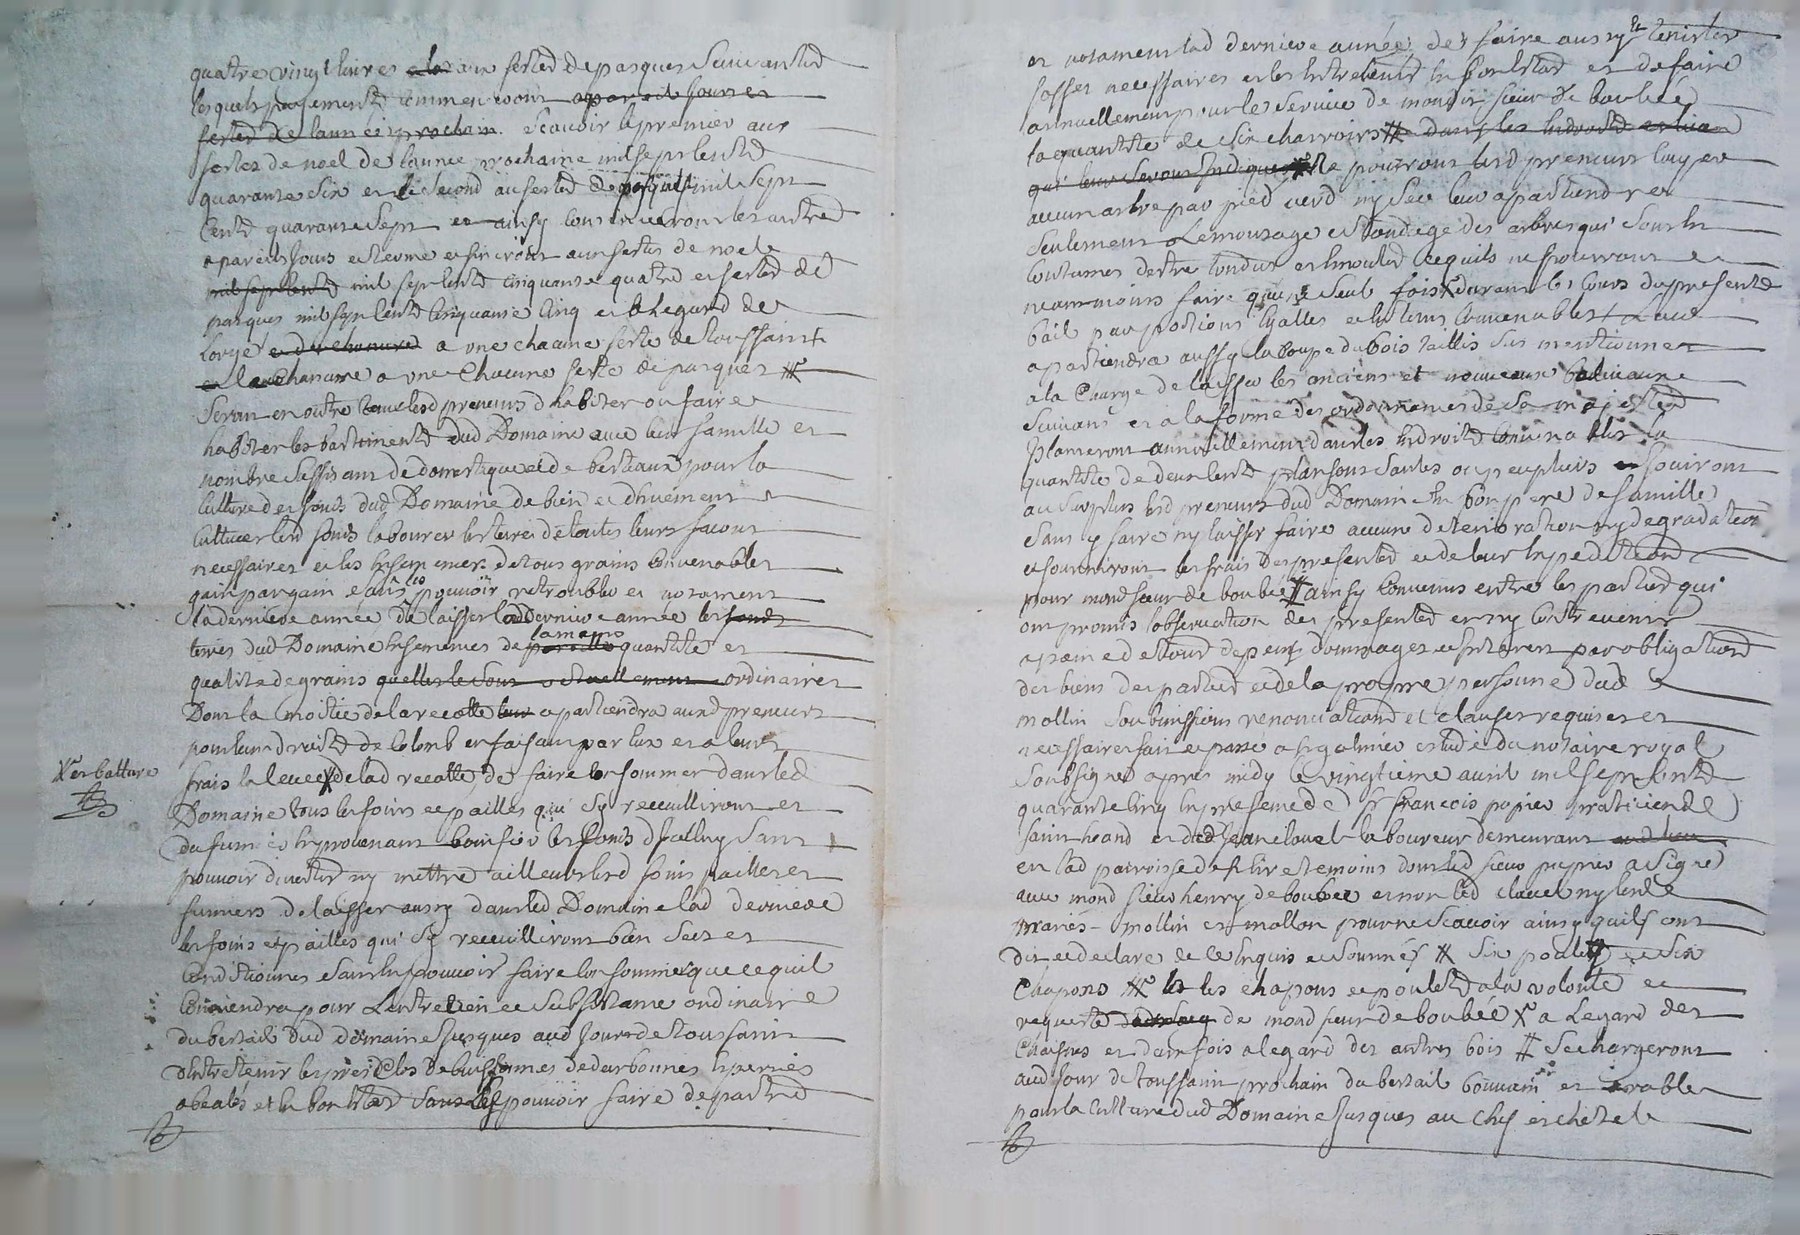 quatre vingt livres aux festes de pasques suivantes
lesquels payements commenceront a pareil jour et
festes de lannée prochaine scavoir le premier aux
festes de noel de lannée prochaine mil sept cents
quarante six et le second aux festes de pasques mil sept
cents quarante sept et ainsy continueront les autres
a pareils jours et terme et finiront aux festes de noel
mil sept cents mil sept cents cinquante quatre et festes de
pasques mil sept cents cinquante cinq et a legard de
lorge a une chacune feste de toussaint
et le chanvre a une chacune feste de pasques #
seront en outre tenus lesd preneurs dhabiter ou faire
habiter les bastiments dud Domaine avec leur famille et
nombre suffisant de domestiques et de bestiaux pour la
culture des fonds dud Domaine de bien et duement
cultiver lesd fonds labourer les terres de toutes leurs facons
necessaires et les ensemencer de tous grains convenables
gain par gain sans les pouvoir retroubler et notament
la derniere année de laisser lad derniere année les fonds
terres dud Domaine ensemencés de la mesme pareille quantité et
qualité de grains quelles le sont actuellement ordinaires
Dont la moitié de la recolte leur apartiendra auxd preneurs
pour leur droit de colons en faisant par eux et a leurs
X et batture
frais la levée X de lad recolte, de faire consommer dans led
Domaine tous les foins et pailles qui sy recueilliront et
du fumier en provenant bonifier les fonds dicelluy sans
pouvoir divertir ny mettre ailleurs lesd foins pailles et
fumiers de laisser aussy dans led Domaine lad derniere
les foins et pailles qui sy recueilliront bien secs et
conditionnés sans en pouvoir faire consommer que ce quil
conviendra pour lentretien et subsistance ordinaire
du bestail dud domaine jusques aud jour de toussaint
dentretenir les prés clos de buissonnés
et en bon estat sans les pouvoir faire depaistre
et notament lad derniere année, de faire aussy et tenir les
fosses necessaires et les entretenir en bon estat et de faire
annuellement pour le service de mondit sieur de boubée
la quantité de six charroirs # dans les endroits et lieux
qui leur seront indiqués ne pourront lesd preneurs couper
aucun arbre par pied verd ny sec leur apartiendra
seulement lemondage et tondage des arbres qui sont en
coutumes destre tondus et emondés lequels ne pourront
neanmoins faire quune seul fois X durant le cours du present
bail par portions egalles et en tems convenables leur
apartiendra aussy la coupe du bois taillis sus mentionné
a la charge de laisser les anciens et nouveaux baliveaux
suivant et a la forme des ordonnances de sa majesté
planteront annuellement dans les endroits convenables la
quantité de deux cents plansons saules ou peupliers et jouiront
au surplus lesd preneurs dud Domaine en bon pere de famille
sans y faire ny laisser faire aucune deterioration ny degradation
et fourniront les frais des presentes et de leur expedition
pour mond sieur de boubée # ainsy convenus entre les parties qui
ont promis lobservation des presentes et ny contrevenir
a peine de tous depens dommages et interests par obligations
des biens des parties et de la propre personne dud
mollin soubmissions renonciations et clauses requises et
necessaires fait et passé a st galmier estude du notaire royal
soubsigné apres midy le vingtieme avril mil sept cents
quarante cinq en presence de sr francois papier praticien de
saint heand et dud jean clavel laboureur demeurant
en lad parroisse de temoins dont led sieur papier a signé
avec mond sieur henry de boubée et non led clavel ny lesd
mariés mollin et mollon pour ne scavoir ainsy quils ont
dit et declaré de ce enquis et sommés # six poulets et six
Chapons # les chapons et poulets a la volonté et
requeste de mond sieur de boubée X a legard des
et dans fois a legard des autres bois # se chargeront
aud jour de toussaint prochain du bestail bouvain et arable
pour la culture dud Domaine jusques au et chetel